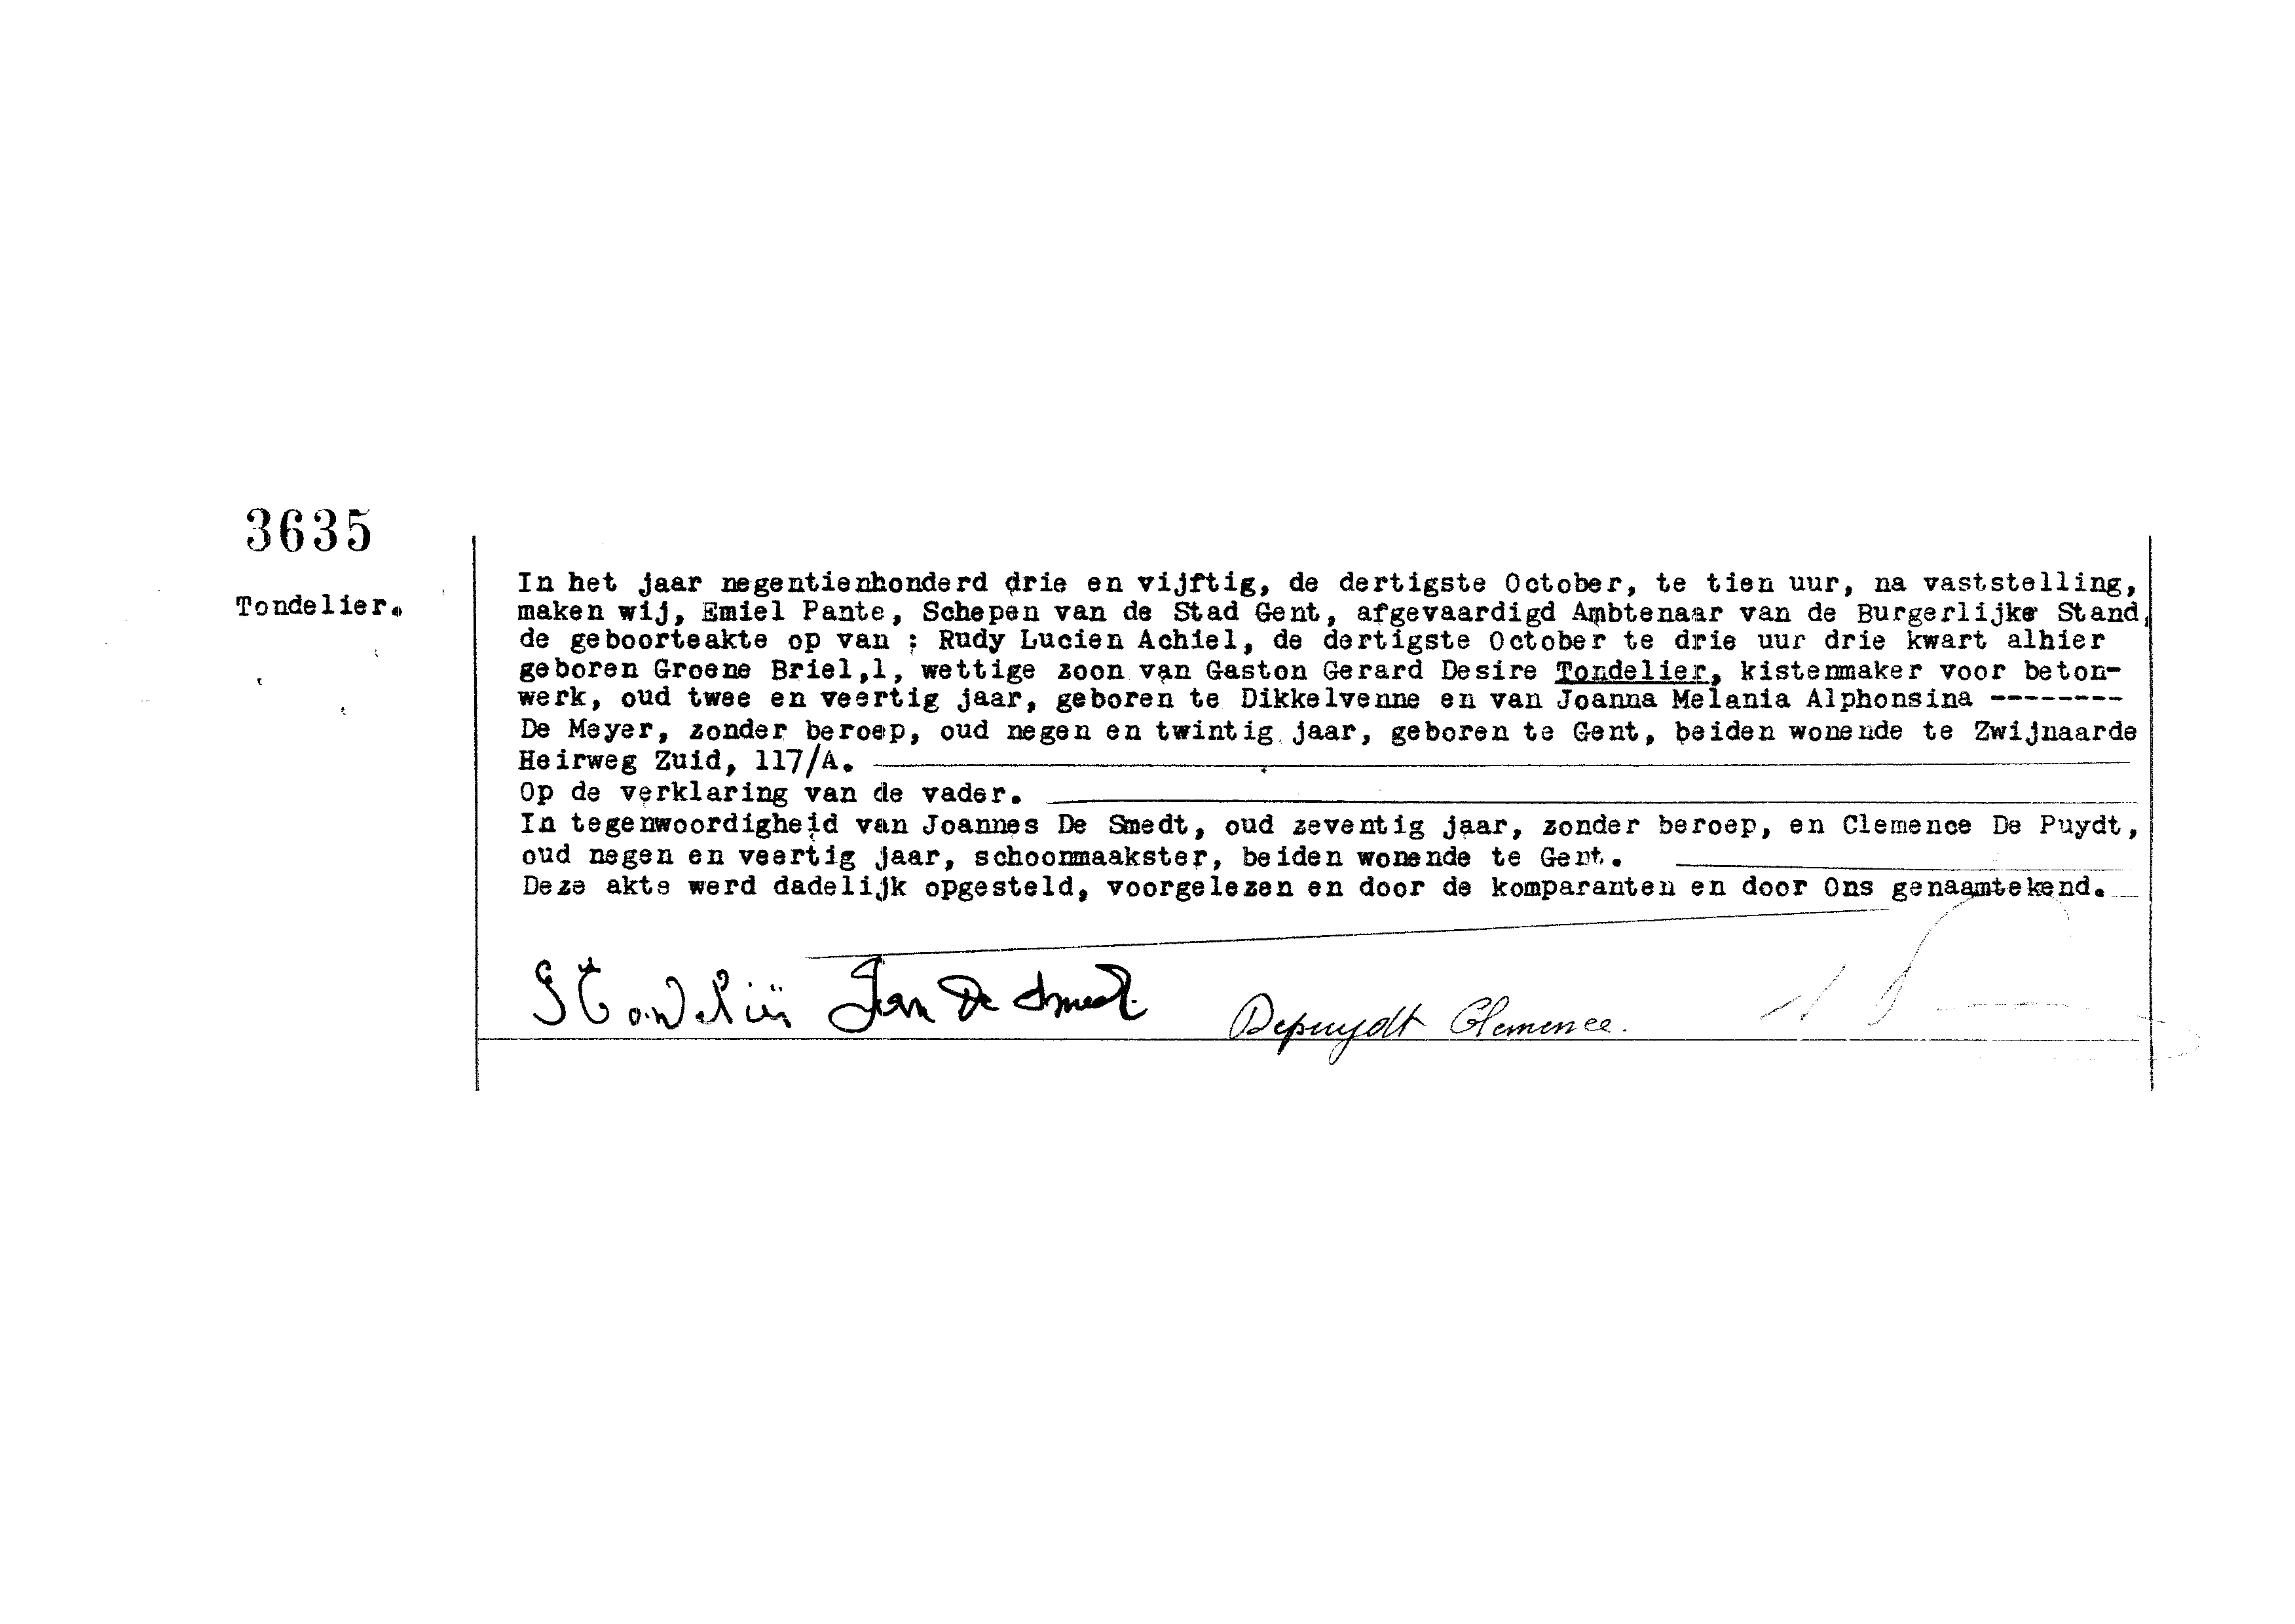 3635
Tondelier.
In het jaar negentienhonderd drie en vijftig, de dertigste October, te tien uur, na vaststelling,
maken wij, Emiel Pante, Schepen van de Stad Gent, afgevaardigd Ambtenaar van de Burgerlijke Stand,
de geboorteakte op van : Rudy Lucien Achiel, de dertigste October te drie uur drie kwart alhier
geboren Groene Briel,1, wettige zoon van Gaston Gerard Desire Tondelier, kistenmaker voor beton-
werk, oud twee en veertig jaar, geboren te Dikkelvenne en van Joanna Melania Alphonsina --------
De Meyer, zonder beroep, oud negen en twintig jaar, geboren te Gent, beiden wonende te Zwijnaarde
Heirweg Zuid, 117/A.
Op de verklaring van de vader.
In tegenwoordigheid van Joannes De Smedt, oud zeventig jaar, zonder beroep, en Clemence De Puydt,
oud negen en veertig jaar, schoonmaakster, beiden wonende te Gent.
Deze akte werd dadelijk opgesteld, voorgelezen en door de komparanten en door Ons genaamtekend.
Jan De Smedt. Depuydt Clemence.